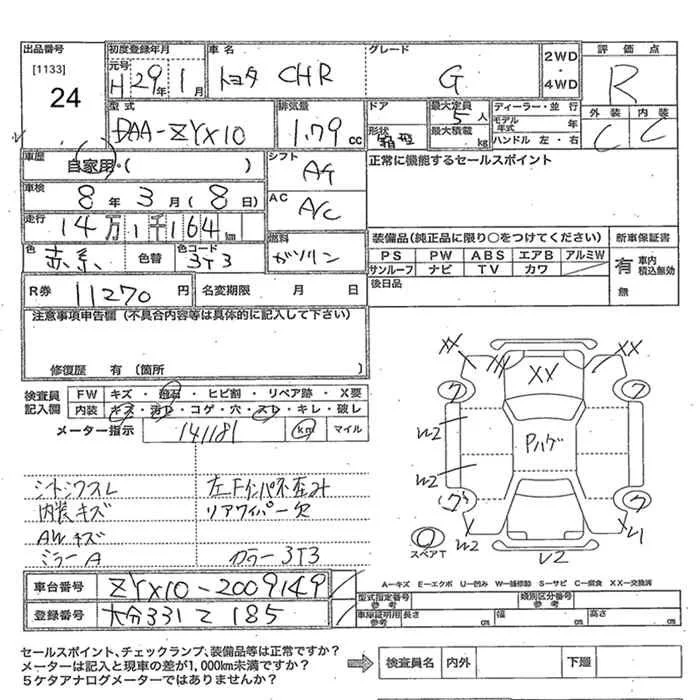 出品番号
[1133]
24
初度登録年月
元号
H 29年 1月
車名
トヨタ CHR
グレード
G
2WD
・
4WD
評価点
R
型式
DAA-ZYX10
排気量
1.79 cc
ドア
形状
箱型
最大定員
5人
最大積載
kg
ディーラー・並行
モデル年式 年
ハンドル 左・右
外装 内装
C C
車歴
自家用・( )
シフト
AT
正常に機能するセールスポイント
車検
8年 3月( 8日)
AC
A/C
走行
14万 1千 164 km
色
赤系
色替
色コード
3T3
燃料
ガソリン
装備品(純正品に限り○をつけてください)
PS PW ABS エアB アルミW
サンルーフ ナビ TV カワ
後日品
新車保証書
有 車内積込無効
無
R券 11270円
名変期限 月 日
注意事項申告欄(不具合内容等は具体的に記入して下さい)
修復歴 有 〔箇所 〕
検査員記入欄
FW キズ・飛石・ヒビ割・リペア跡・X要
内装 キズ・汚レ・コゲ・穴・スレ・キレ・破レ
メーター指示 141181 km マイル
XX
XX
XX
Pハゲ
W2
W2
W2
V2
スペアT
シートシワスレ
内装キズ
AWキズ
ミラーA
左Fインパネ歪み
リアワイパー欠
カラー3T3
A-キズ E-エクボ U-凹み W-補修跡 S-サビ C-腐食 XX-交換済
車台番号 ZYX10-2009149
登録番号 大分331 て 185
型式指定番号
参考
類別区分番号
参考
車庫証明用
参考
長さ cm
幅 cm
高さ cm
セールスポイント、チェックランプ、装備品等は正常ですか?
メーターは記入と現車の差が1,000km未満ですか?
5ケタアナログメーターではありませんか?
検査員名 内外 下廻